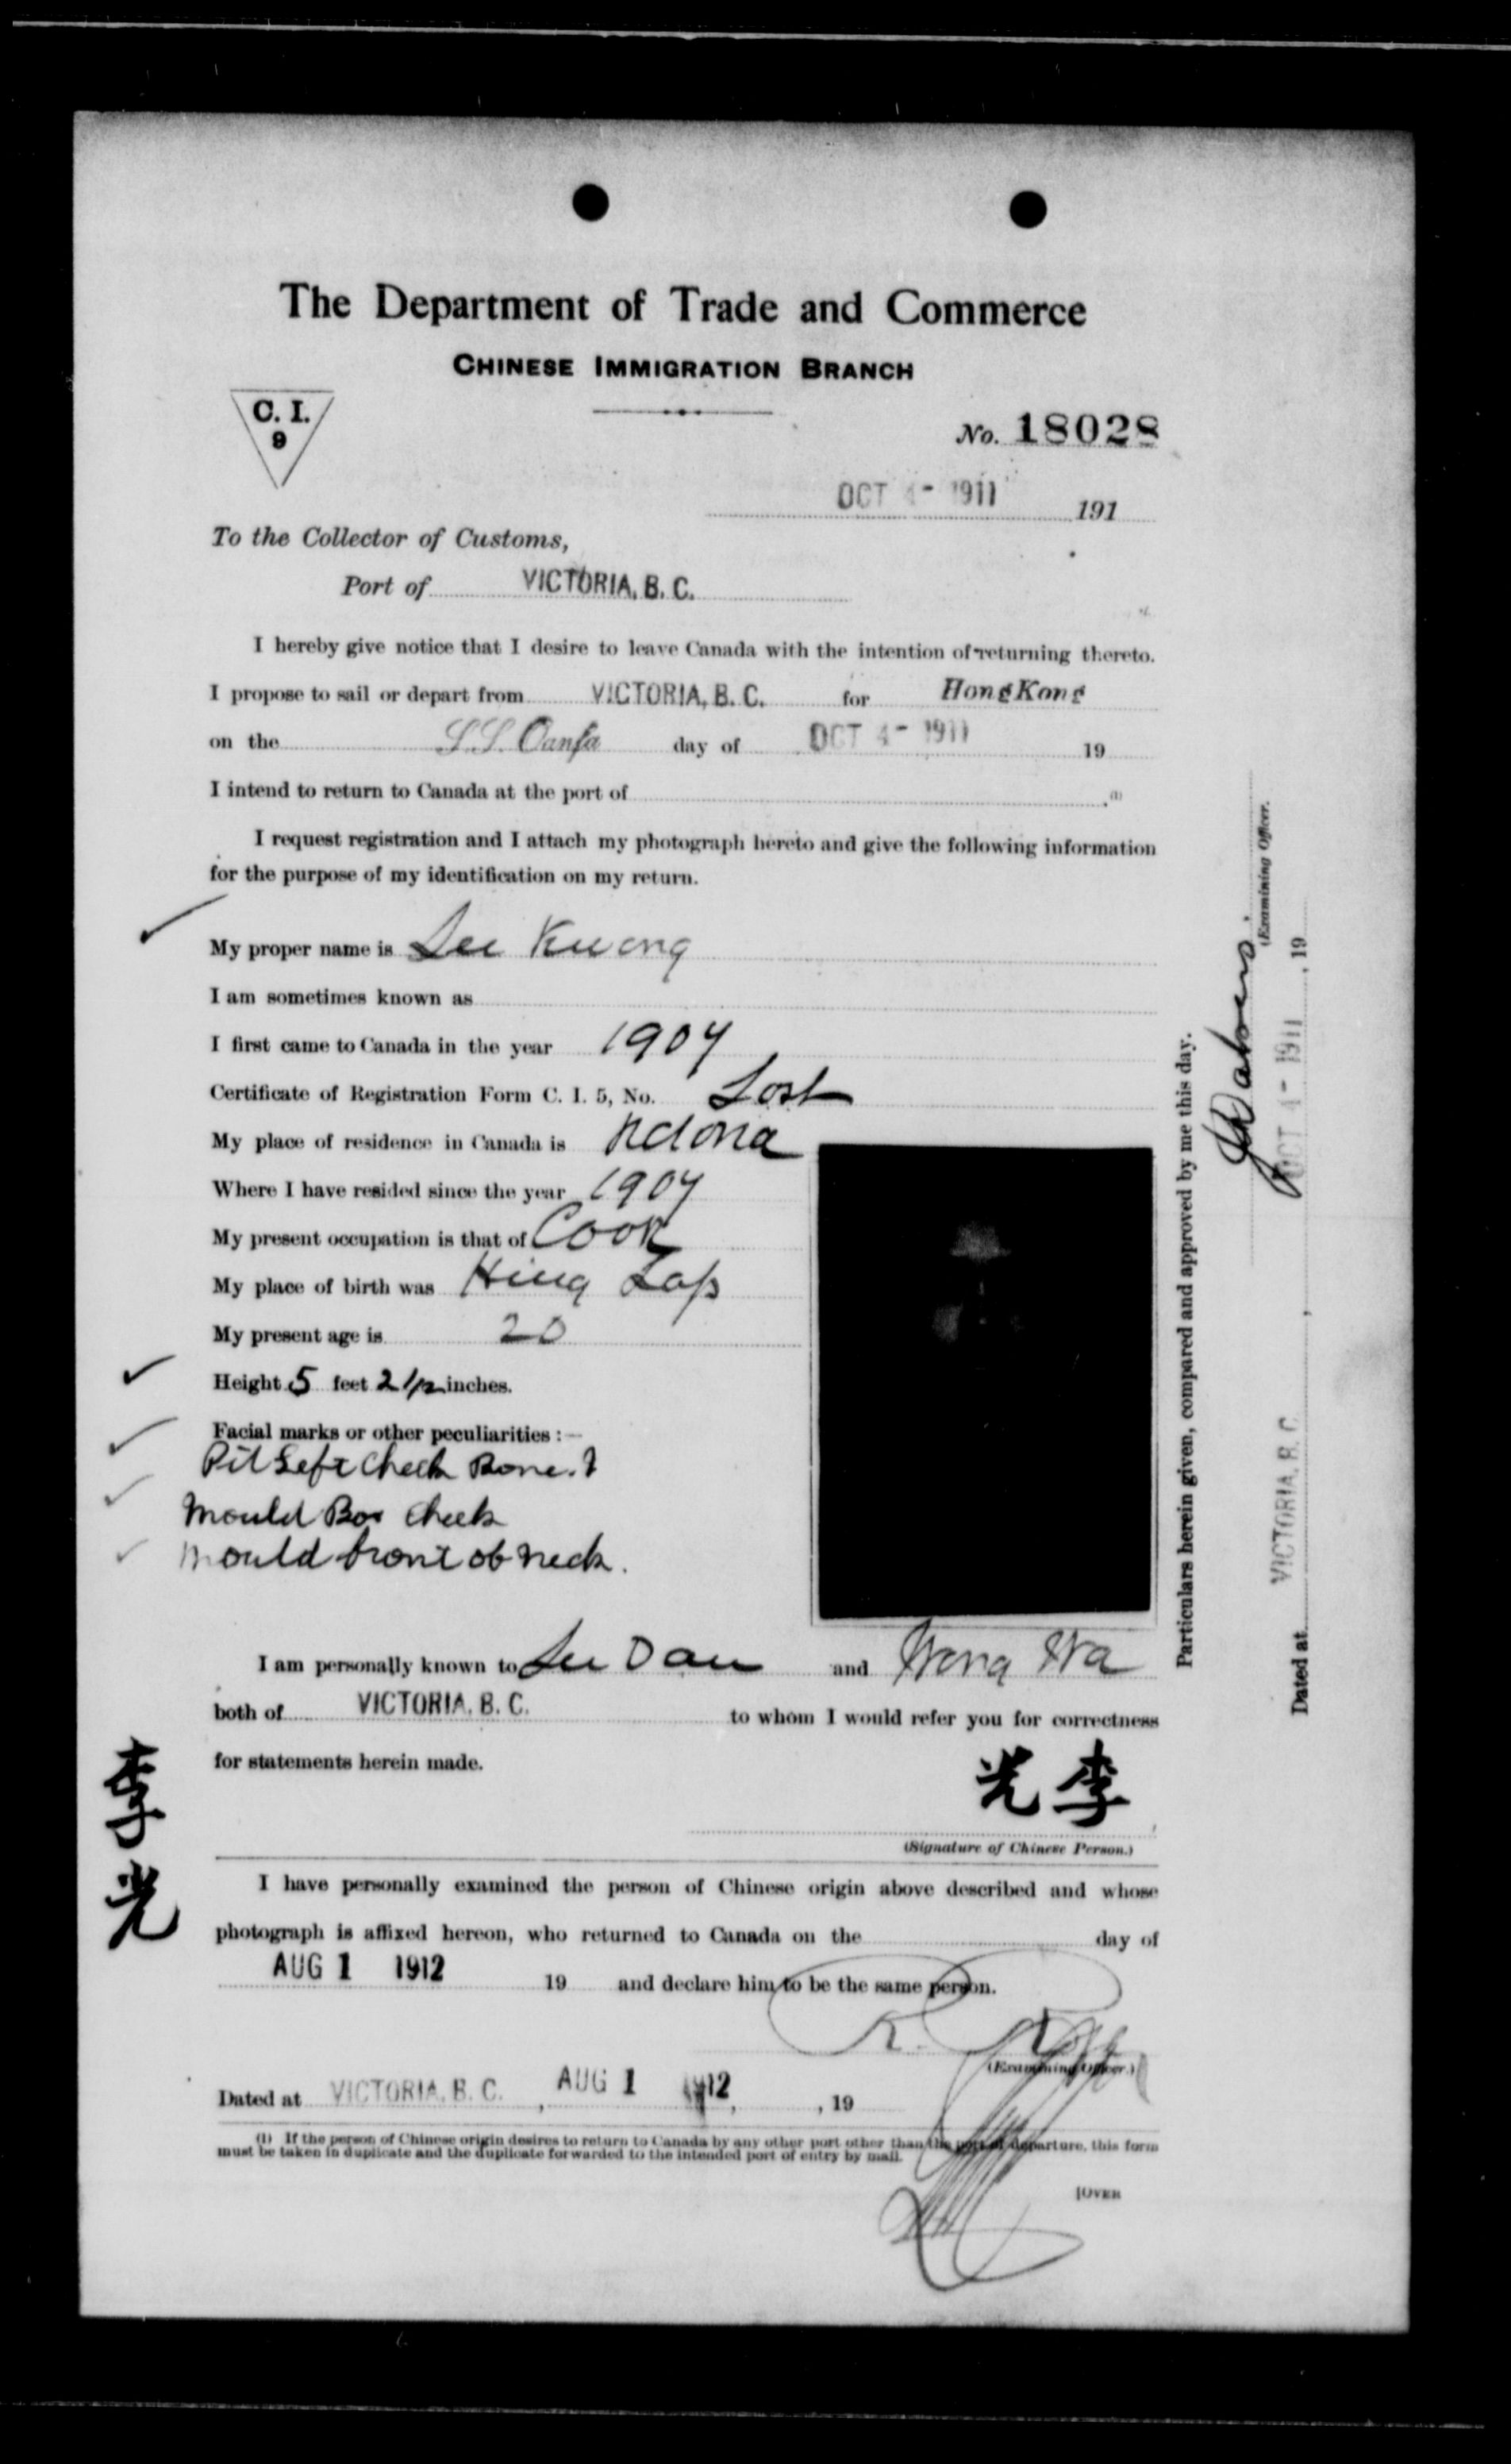 The Department of Trade and Commerce
CHINESE IMMIGRATION BRANCH
C. I.
9
No. 18028
OCT 4- 1911 191
To the Collector of Customs,
Port of VICTORIA, B. C.
I hereby give notice that I desire to leave Canada with the intention of returning thereto.
I propose to sail or depart from VICTORIA, B. C. for HongKong
on the S.S. Oanfa day of OCT 4- 1911 19
I intend to return to Canada at the port of .(1)
I request registration and I attach my photograph hereto and give the following information
for the purpose of my identification on my return.
My proper name is Lee Kwong
I am sometimes known as
I first came to Canada in the year 1907
Certificate of Registration Form C. I. 5, No. Lost
My place of residence in Canada is
Where I have resided since the year 1907
My present occupation is that of Cook
My place of birth was Hing
My present age is 20
Height 5 feet 2 1/2 inches.
Facial marks or other peculiarities :—
Pit Left Cheek Bone.
Mould Cheek
Mould front of neck.
I am personally known to Lee Dan and Wong Wa
both of VICTORIA, B. C. to whom I would refer you for correctness
for statements herein made.
光李
(Signature of Chinese Person.)
李光
I have personally examined the person of Chinese origin above described and whose
photograph is affixed hereon, who returned to Canada on the day of
AUG 1 1912 19 and declare him to be the same person.
(Examining Officer.)
Dated at VICTORIA, B. C. , AUG 1 1912, , 19
(1) If the person of Chinese origin desires to return to Canada by any other port other than the port of departure, this form
must be taken in duplicate and the duplicate forwarded to the intended port of entry by mail.
[OVER
Particulars herein given, compared and approved by me this day.
(Examining Officer.
Dated at VICTORIA, B. C. , OCT 4- 1911 , 19